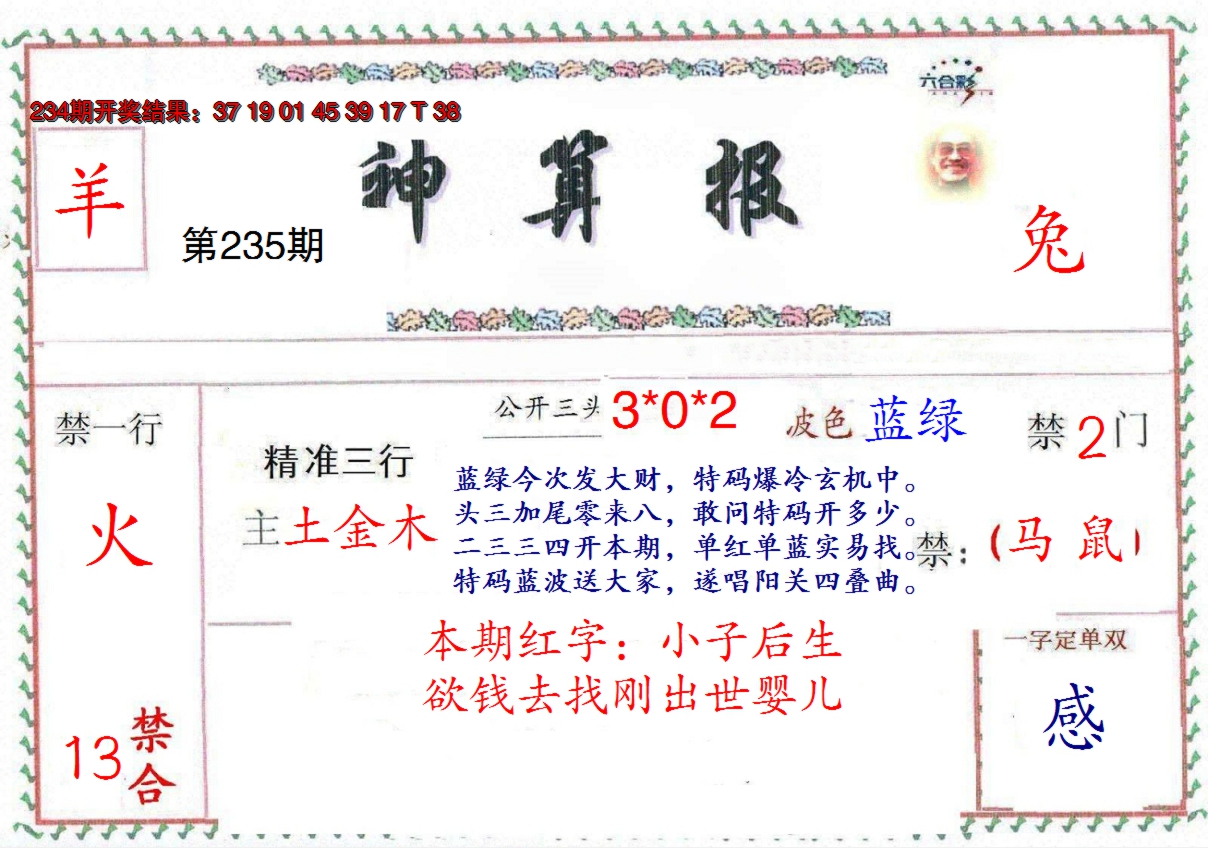 六合彩
234期开奖结果：37 19 01 45 39 17 T 38
神算报
羊
第235期
兔
公开三头 3*0*2 波色 蓝绿
禁一行
禁2门
精准三行
蓝绿今次发大财，特码爆冷玄机中。
主土金木
头三加尾零来八，敢问特码开多少。
火
二三三四开本期，单红单蓝实易找。
禁：（马 鼠）
特码蓝波送大家，遂唱阳关四叠曲。
本期红字：小子后生
一字定单双
欲钱去找刚出世婴儿
感
13禁合